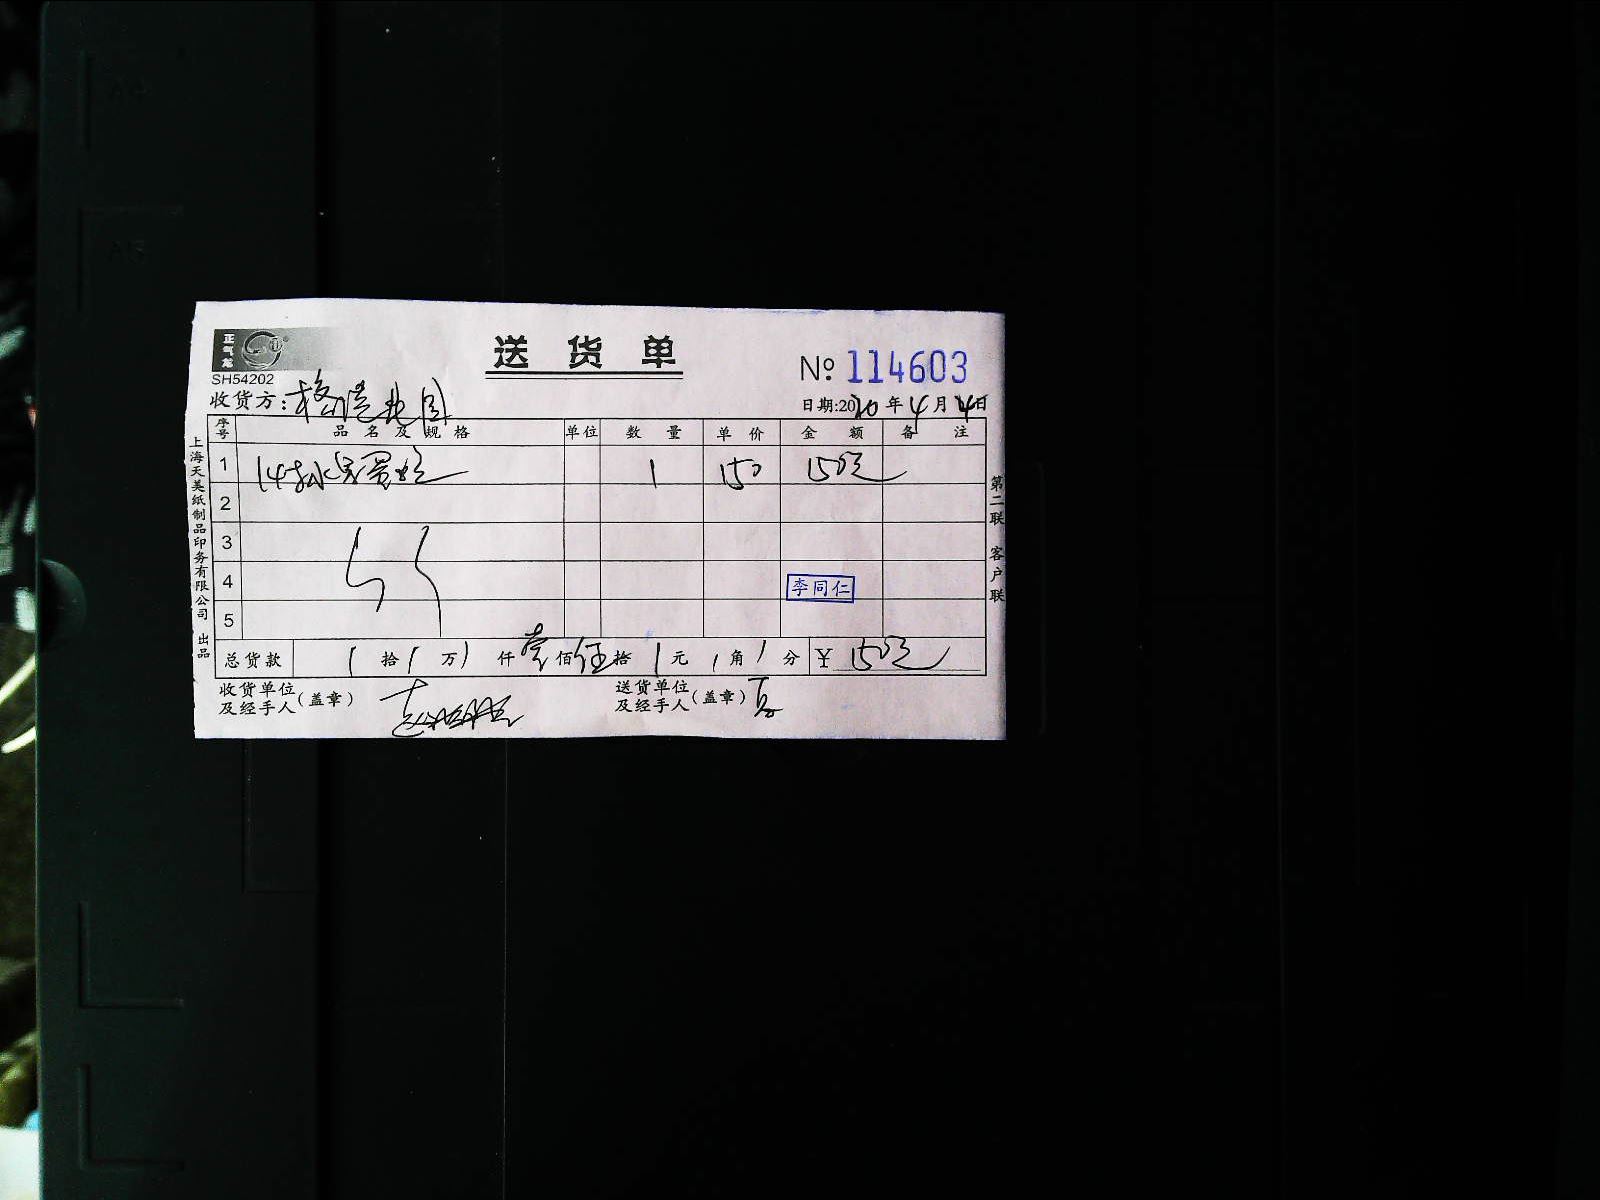 正气龙
送货单
№ 114603
SH54202
收货方:
日期:2020年4月4日
序号 品名及规格 单位 数量 单价 金额 备注
1 1 150 150元
2
3
4
李同仁
5
总货款 拾 万 仟 壹 佰 伍 拾 元 角 分 ¥ 150元
收货单位及经手人(盖章)
送货单位及经手人(盖章)
上海天美纸制品印务有限公司 出品
第二联 客户联
A4
A5